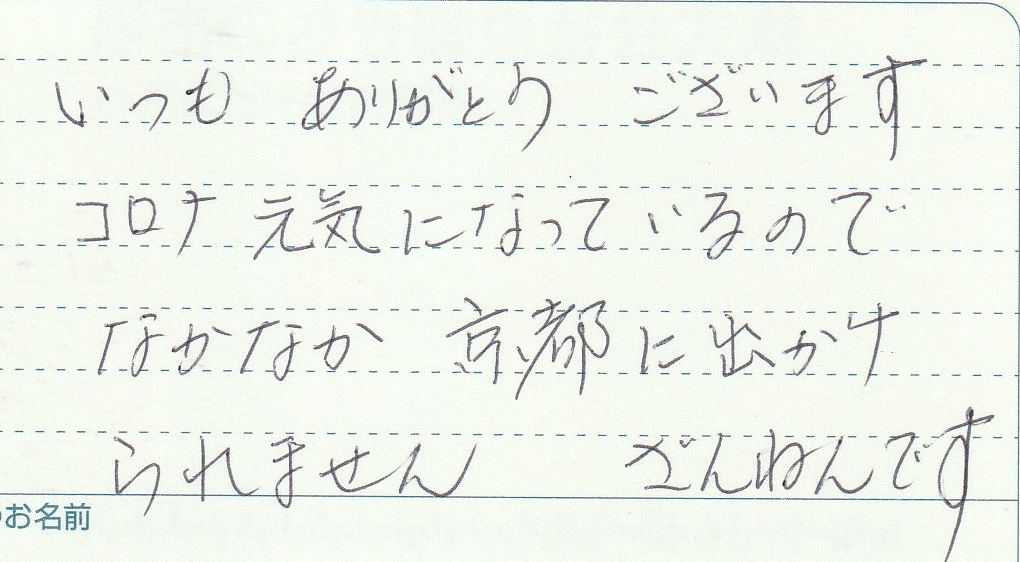 いつも ありがとう ございます
コロナ 元気になって いるので
なかなか 京都に出かけ
られません ざんねんです
お名前